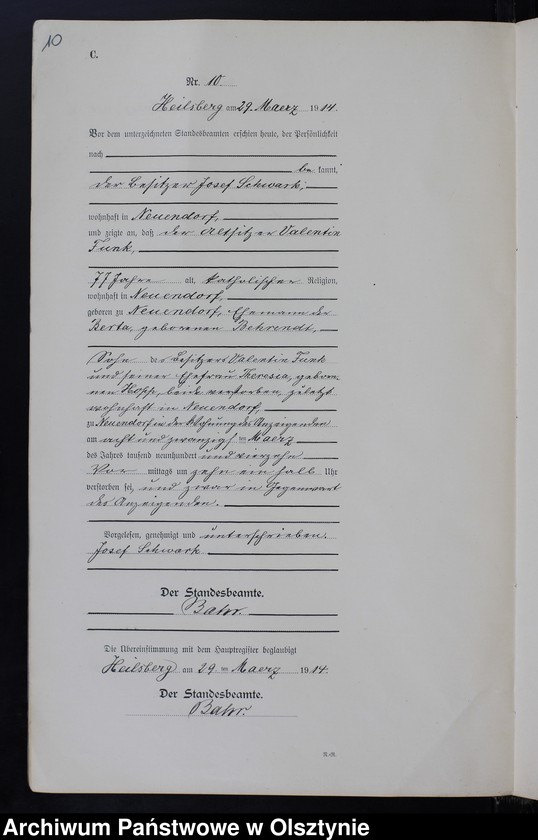 10
C.
Nr. 10.
Heilsberg am 29. Maerz 1914.
Vor dem unterzeichneten Standesbeamten erschien heute, der Persönlichkeit
nach
be kannt,
der Besitzer Josef Schwark,
wohnhaft in Neuendorf,
und zeigte an, daß der Altsitzer Valentin
Funk,
77 Jahre alt, katholischer Religion,
wohnhaft in Neuendorf,
geboren zu Neuendorf, Ehemann der
Berta, geborenen Behrendt,
Sohn des Besitzers Valentin Funk
und seiner Ehefrau Theresia, gebore-
nen beide verstorben, zuletzt
wohnhaft in Neuendorf,
zu Neuendorf in der Wohnung des Anzeigenden
am acht und zwanzigsten Maerz
des Jahres tausend neunhundert und vierzehn
Vor mittags um zehn ein halb Uhr
verstorben sei, und zwar in Gegenwart
des Anzeigenden.
Vorgelesen, genehmigt und unterschrieben.
Josef Schwark
Der Standesbeamte.
Bahr.
Die Übereinstimmung mit dem Hauptregister beglaubigt
Heilsberg am 29. ten Maerz 1914.
Der Standesbeamte.
Bahr.
Archiwum Państwowe w Olsztynie